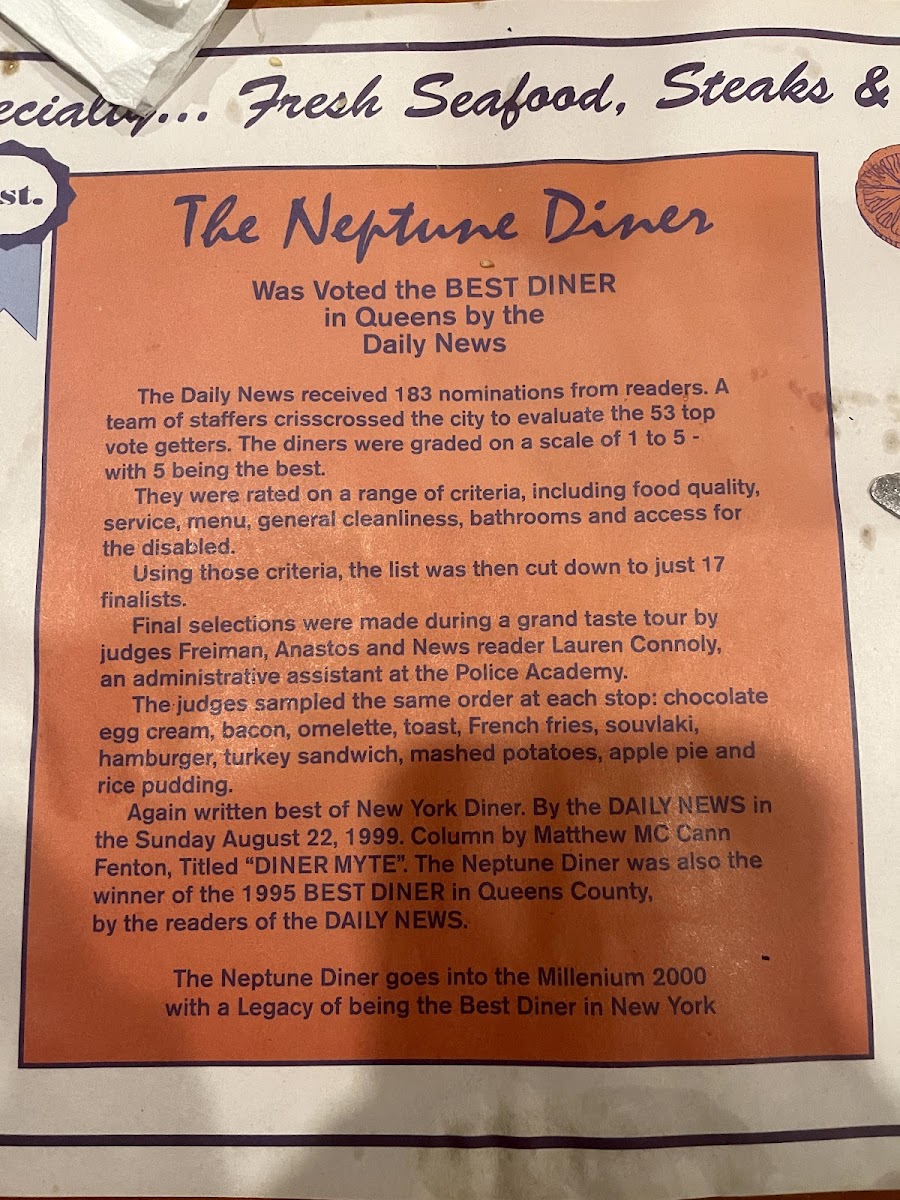 Fresh Seafood, Steaks &
st.
The Neptune Diner
Was Voted the BEST DINER
in Queens by the
Daily News
The Daily News received 183 nominations from readers. A
team of staffers crisscrossed the city to evaluate the 53 top
vote getters. The diners were graded on a scale of 1 to 5 -
with 5 being the best.
They were rated on a range of criteria, including food quality,
service, menu, general cleanliness, bathrooms and access for
the disabled.
Using those criteria, the list was then cut down to just 17
finalists.
Final selections were made during a grand taste tour by
judges Freiman, Anastos and News reader Lauren Connoly,
an administrative assistant at the Police Academy.
The judges sampled the same order at each stop: chocolate
egg cream, bacon, omelette, toast, French fries, souvlaki,
hamburger, turkey sandwich, mashed potatoes, apple pie and
rice pudding.
Again written best of New York Diner. By the DAILY NEWS in
the Sunday August 22, 1999. Column by Matthew MC Cann
Fenton, Titled “DINER MYTE”. The Neptune Diner was also the
winner of the 1995 BEST DINER in Queens County,
by the readers of the DAILY NEWS.
The Neptune Diner goes into the Millenium 2000
with a Legacy of being the Best Diner in New York